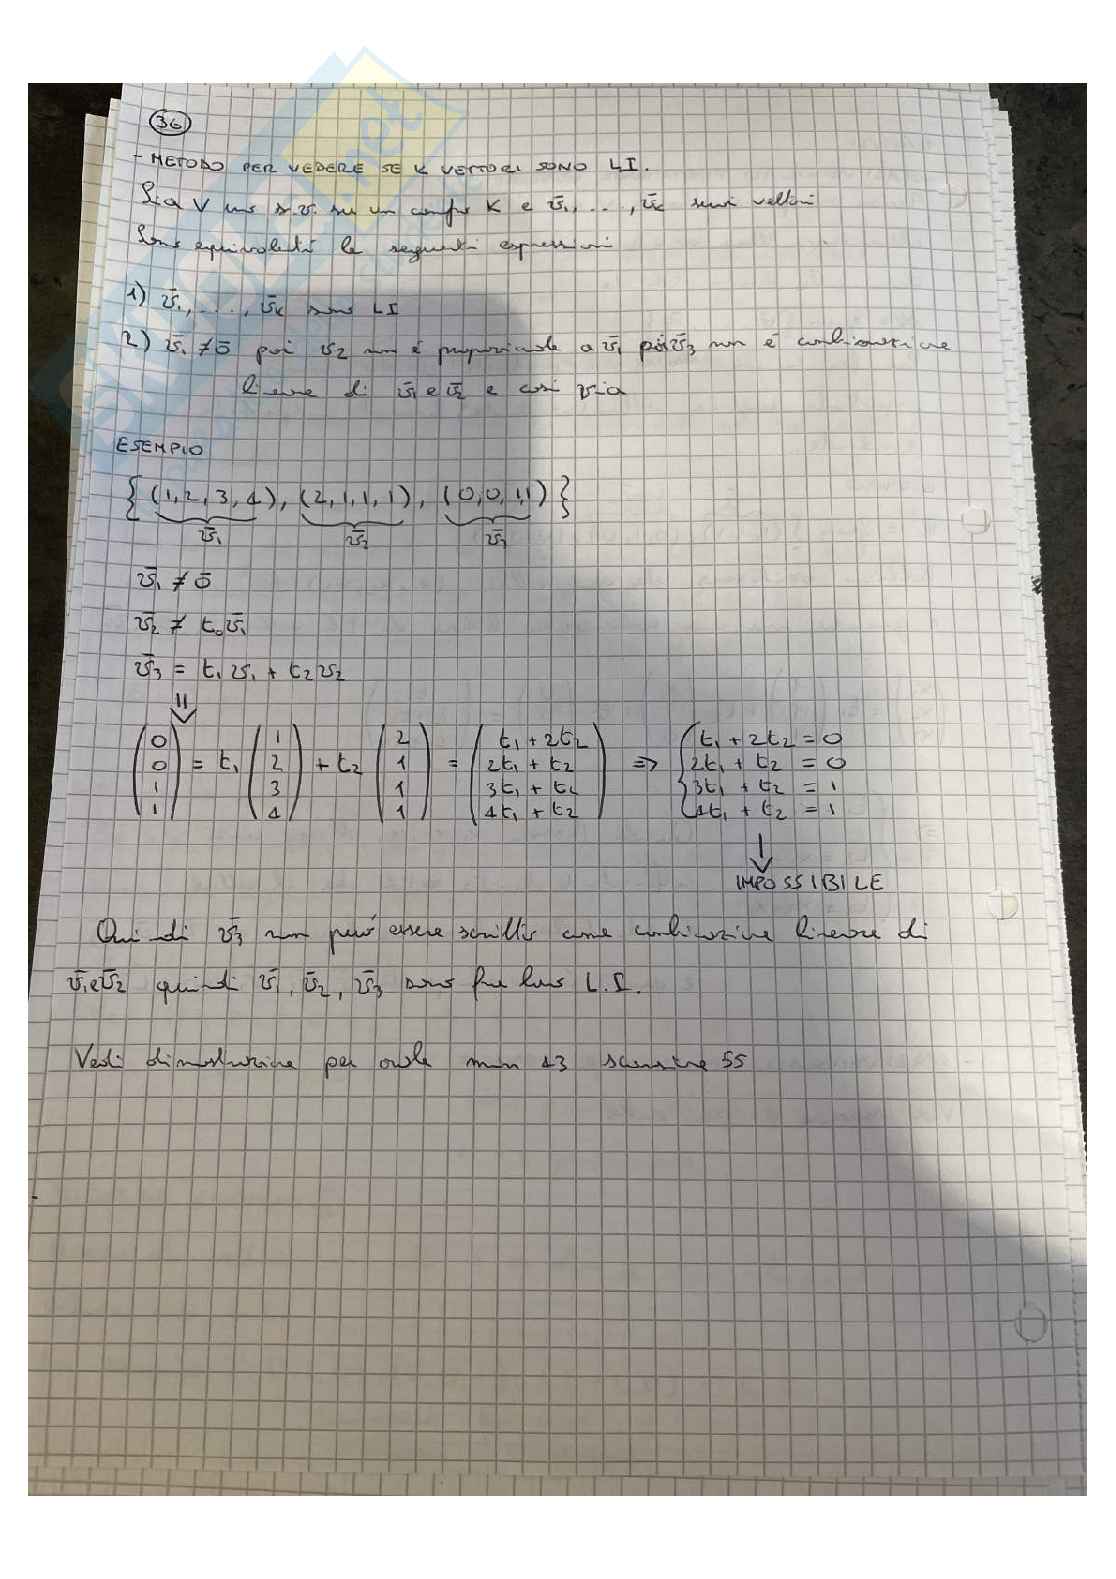 36
- METODO PER VEDERE SE K VETTORI SONO LI.
Sia V uno s.v. su un campo K e v̄₁, ..., v̄ₖ suoi vettori
Sono equivalenti le seguenti espressioni
1) v̄₁, ..., v̄ₖ sono LI
2) v̄₁ ≠ ō poi v₂ non é proporzionale a v̄₁ poi v̄₃ non é combinazione
lineare di v̄₁ e v̄₂ e così via
ESEMPIO
{(1,2,3,4), (2,1,1,1), (0,0,1,1)}
v̄₁ v̄₂ v̄₃
v̄₁ ≠ ō
v̄₂ ≠ t₀v̄₁
v̄₃ = t₁v₁ + t₂v₂
⇓
(0 0 1 1) = t₁ (1 2 3 4) + t₂ (2 1 1 1) = (t₁ + 2t₂ 2t₁ + t₂ 3t₁ + t₂ 4t₁ + t₂) ⇒ { t₁ + 2t₂ = 0 2t₁ + t₂ = 0 3t₁ + t₂ = 1 4t₁ + t₂ = 1
↓
IMPOSSIBILE
Quindi v̄₃ non può essere scritto come combinazione lineare di
v̄₁ e v̄₂ quindi v̄₁, v̄₂, v̄₃ sono fra loro L.I.
Vedi dimostrazione per orale min 13 55